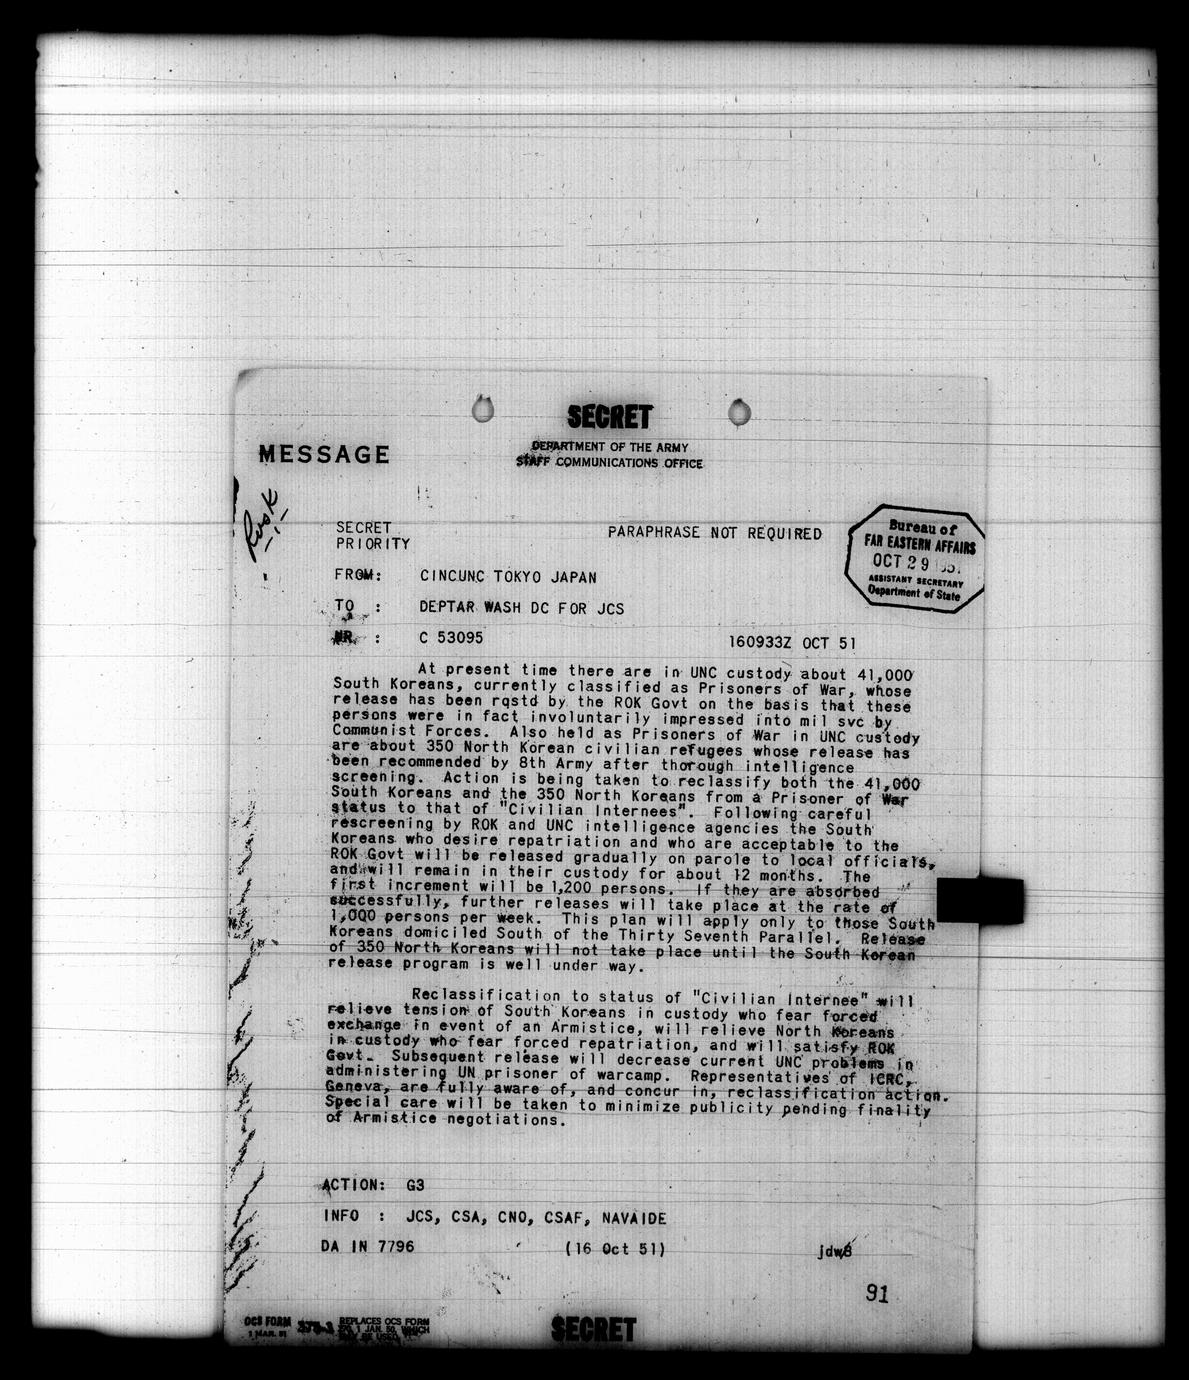 SECRET
DEPARTMENT OF THE ARMY
STAFF COMMUNICATIONS OFFICE
MESSAGE
Rusk
SECRET
PRIORITY
PARAPHRASE NOT REQUIRED
Bureau of
FAR EASTERN AFFAIRS
OCT 29 1951
ASSISTANT SECRETARY
Department of State
FROM: CINCUNC TOKYO JAPAN
TO : DEPTAR WASH DC FOR JCS
NR : C 53095 160933Z OCT 51
At present time there are in UNC custody about 41,000
South Koreans, currently classified as Prisoners of War, whose
release has been rqstd by the ROK Govt on the basis that these
persons were in fact involuntarily impressed into mil svc by
Communist Forces. Also held as Prisoners of War in UNC custody
are about 350 North Korean civilian refugees whose release has
been recommended by 8th Army after thorough intelligence
screening. Action is being taken to reclassify both the 41,000
South Koreans and the 350 North Koreans from a Prisoner of War
status to that of "Civilian Internees". Following careful
rescreening by ROK and UNC intelligence agencies the South
Koreans who desire repatriation and who are acceptable to the
ROK Govt will be released gradually on parole to local officials,
and will remain in their custody for about 12 months. The
first increment will be 1,200 persons. If they are absorbed
successfully, further releases will take place at the rate of
1,000 persons per week. This plan will apply only to those South
Koreans domiciled South of the Thirty Seventh Parallel. Release
of 350 North Koreans will not take place until the South Korean
release program is well under way.
Reclassification to status of "Civilian Internee" will
relieve tension of South Koreans in custody who fear forced
exchange in event of an Armistice, will relieve North Koreans
in custody who fear forced repatriation, and will satisfy ROK
Govt. Subsequent release will decrease current UNC problems in
administering UN prisoner of warcamp. Representatives of ICRC,
Geneva, are fully aware of, and concur in, reclassification action.
Special care will be taken to minimize publicity pending finality
of Armistice negotiations.
ACTION: G3
INFO : JCS, CSA, CNO, CSAF, NAVAIDE
DA IN 7796 (16 Oct 51) jdw/B
91
OCS FORM 375-3 REPLACES OCS FORM
1 MAR. 51 1 JAN. 50, WHICH
MAY BE USED.
SECRET